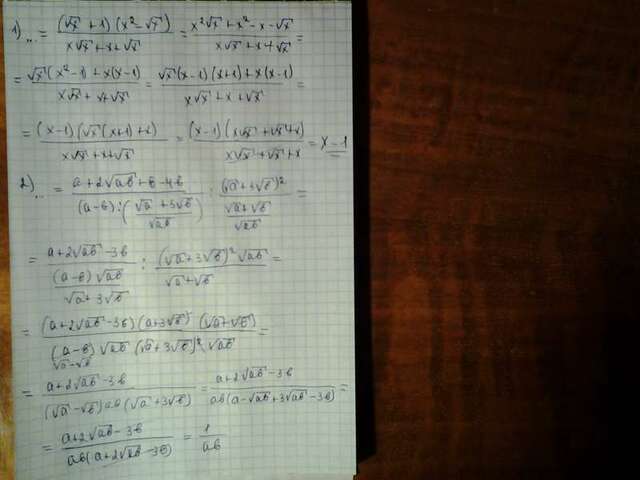 1) ... = (√x + 1)(x² - √x) / (x√x + x + √x) = (x²√x + x² - x - √x) / (x√x + x + √x) =
= (√x(x² - 1) + x(x - 1)) / (x√x + x + √x) = (√x(x - 1)(x + 1) + x(x - 1)) / (x√x + x + √x) =
= (x - 1)(√x(x + 1) + x) / (x√x + x + √x) = (x - 1)(x√x + √x + x) / (x√x + √x + x) = x - 1
2) ... = (a + 2√ab + b - 4b) / ((a - b) : ((√a + 3√b) / √ab)) : (√a + 3√b)² / ((√a + √b) / √ab) =
= (a + 2√ab - 3b) / ((a - b)√ab / (√a + 3√b)) : (√a + 3√b)²√ab / (√a + √b) =
= (a + 2√ab - 3b)(a + 3√b)(√a + √b) / ((a - b)√ab(√a + 3√b)²√ab) =
√a - √b
= (a + 2√ab - 3b) / ((√a - √b)ab(√a + 3√b)) = (a + 2√ab - 3b) / (ab(a - √ab + 3√ab - 3b)) =
= (a + 2√ab - 3b) / (ab(a + 2√ab - 3b)) = 1 / ab